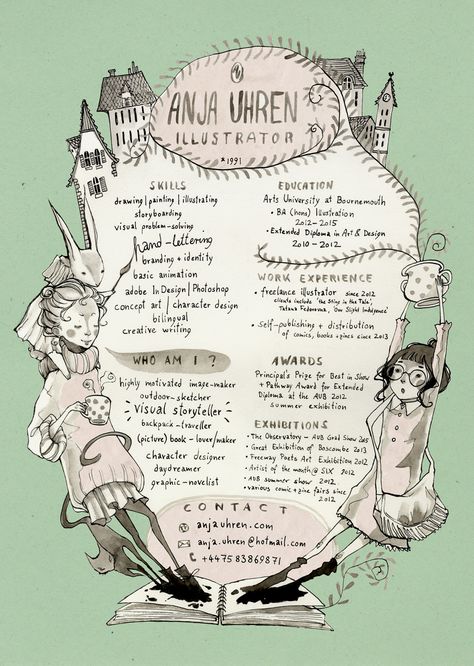 ANJA UHREN
ILLUSTRATOR
*1991
SKILLS
drawing | painting | illustrating
storyboarding
visual problem-solving
hand-lettering
branding + identity
basic animation
adobe InDesign | Photoshop
concept art | character design
bilingual
creative writing
WHO AM I ?
highly motivated image-maker
outdoor-sketcher
visual storyteller
backpack-traveller
(picture) book-lover/maker
character designer
daydreamer
graphic-novelist
EDUCATION
Arts University at Bournemouth
• BA (hons) Illustration
2012-2015
• Extended Diploma in Art & Design
2010-2012
WORK EXPERIENCE
• freelance illustrator since 2012
clients include 'the Sting in the Tale',
Tatana Fedorovna, 'One Slight Indulgence'
• Self-publishing + distribution
of comics, books + zines since 2013
AWARDS
Principal's Prize for Best in Show
+ Pathway Award for Extended
Diploma at the AUB 2012
summer exhibition
EXHIBITIONS
• The Observatory - AUB Grad Show 2015
• Great Exhibition of Boscombe 2013
• Freeway Poets Art Exhibition 2012
• Artist of the month@ SIX 2012
• AUB summer show 2012
• various comic + zine fairs since
2012
CONTACT
anjauhren.com
anja.uhren@hotmail.com
+447583869871